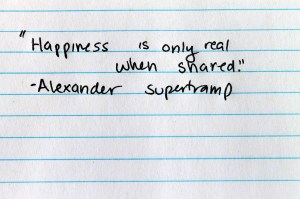 "Happiness is only real
when shared."
-Alexander supertramp